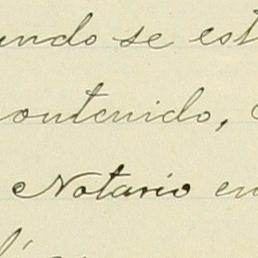 ando se est
contenido,
Notario en